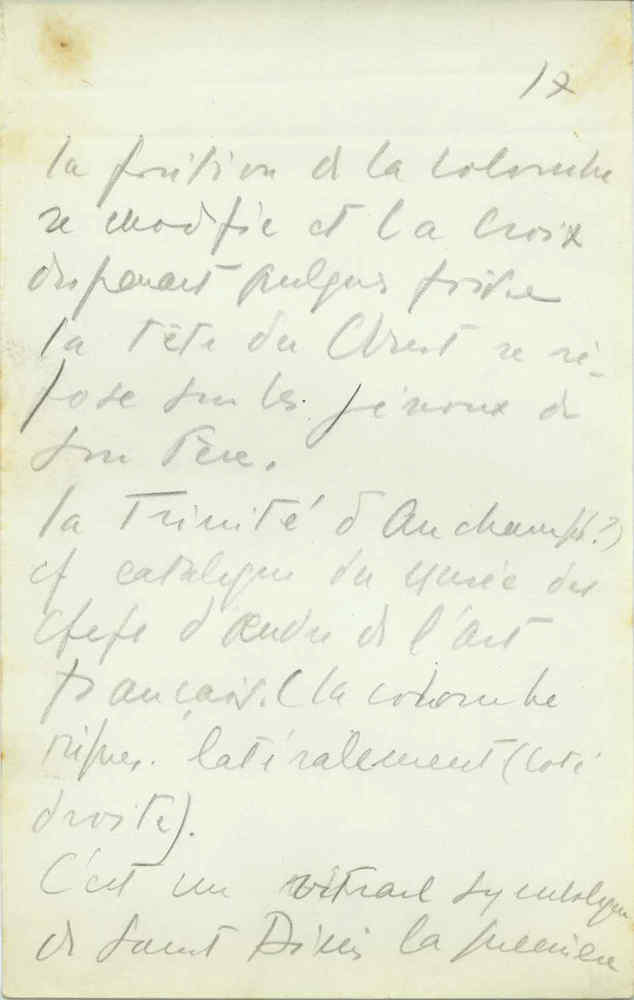 17
la position de la colombe
se modifie et la Croix
disparaît quelques fois
la Tête du Christ se re-
pose sur les genoux de
son Père.
la Trinité d'Auchamps(?)
cf catalogue du musée des
chefs d'œuvre de l'art
français. (la colombe
latéralement (coté
droite).
C'est un vitrail symbolique
de Saint Denis la première